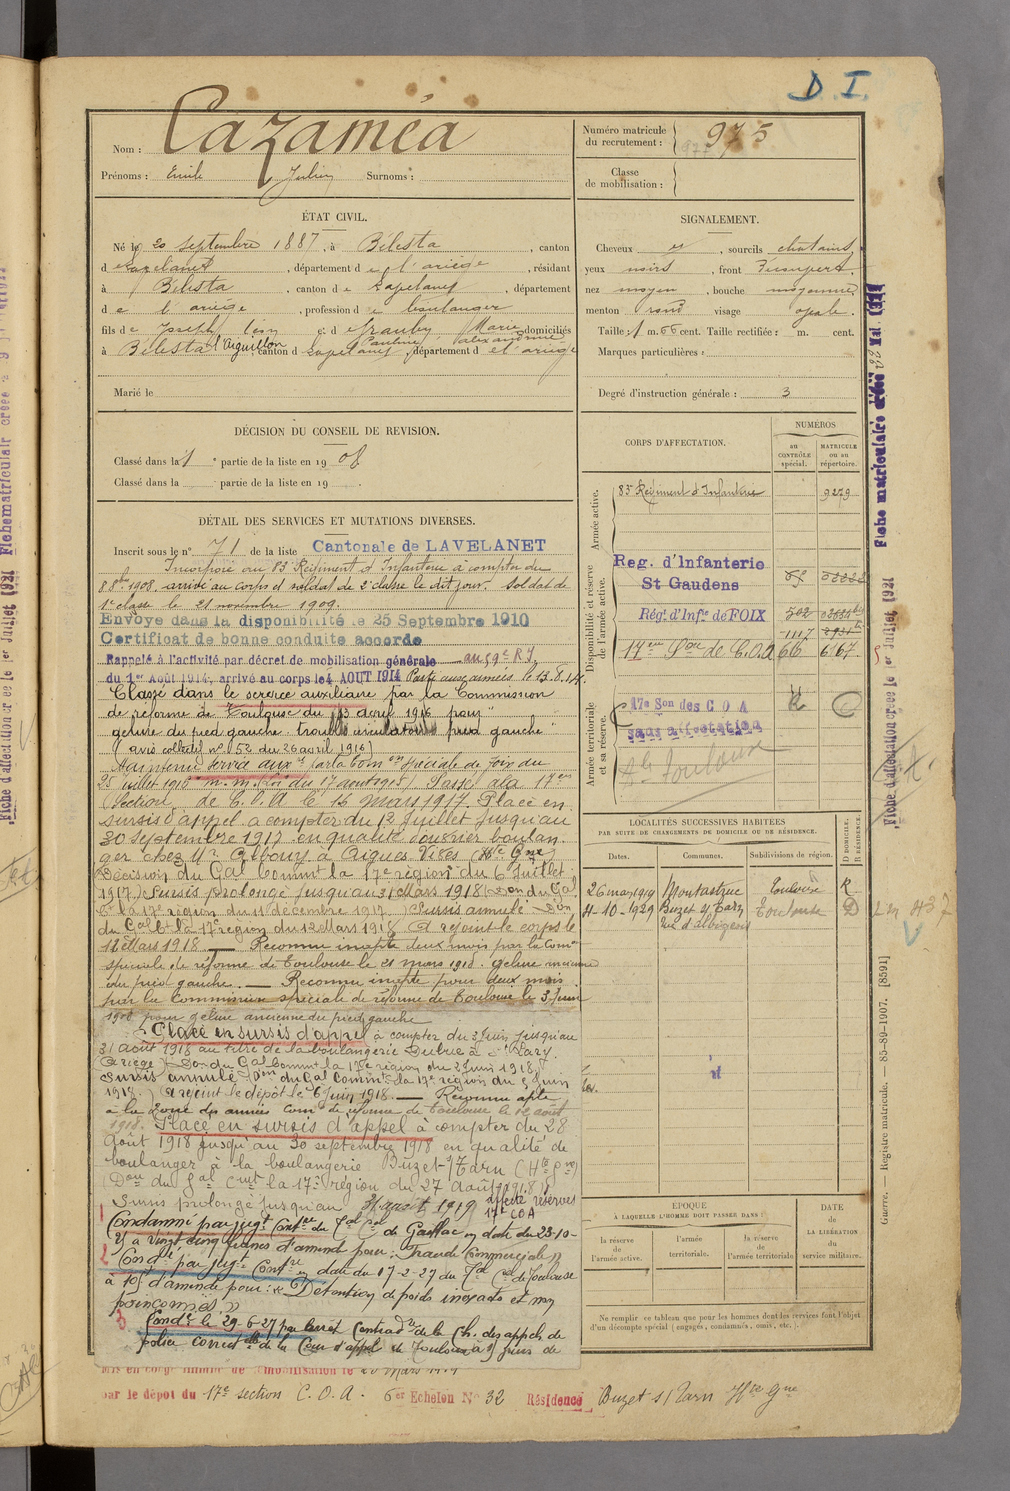 D. I.
Nom : Cazaméa
Prénoms : Emile Julien Surnoms :
Numéro matricule du recrutement : 975
Classe de mobilisation :
ÉTAT CIVIL.
Né le 20 septembre 1887, à Bélesta, canton
d e Lavelanet, département d e l'ariège, résidant
à Bélesta, canton d e Lavelanet, département
d e l'ariège, profession d e boulanger
fils d e Joseph Léon et d e Marie domiciliés
Pauline alexandrine
à Bélesta l'Aiguillon, canton d e Lavelanet, département d e l'ariège
Marié le
SIGNALEMENT.
Cheveux et, sourcils chatains
yeux noirs, front découvert.
nez moyen, bouche moyenne
menton rond visage ovale.
Taille : 1 m. 66 cent. Taille rectifiée : m. cent.
Marques particulières :
Degré d'instruction générale : 3
DÉCISION DU CONSEIL DE REVISION.
Classé dans la 1e partie de la liste en 1908
Classé dans la e partie de la liste en 19 .
DÉTAIL DES SERVICES ET MUTATIONS DIVERSES.
Inscrit sous le n° 71 de la liste Cantonale de LAVELANET
Incorporé au 83 Régiment d'Infanterie à compter du
8 8bre 1908. arrivé au corps et soldat de 2e classe le dit jour. Soldat de
1e classe le 21 novembre 1909.
Envoyé dans la disponibilité le 25 Septembre 1910
Certificat de bonne conduite accordé
Rappelé à l'activité par décret de mobilisation générale au 59e R.I.
du 1er Août 1914, arrivé au corps le 4 AOUT 1914 Parti aux armées le 13.8.14.
Classé dans le service auxiliaire par la Commission
de réforme de Toulouse du 13 avril 1916 pour "
gelure du pied gauche. troubles circulatoires pied gauche"
(avis collectif n° 52 du 26 avril 1916)
Maintenu service auxre par la Comon spéciale de Foix du
25 juillet 1916 Passé à la 17en
Section de C.O.A le 16 mars 1917. Placé en
sursis d'appel à compter du 12 Juillet jusqu'au
30 septembre 1917 en qualité d'ouvrier boulan
ger chez Mr Ribouy à Aigues Vives (Hte Gne)
Décision du Gal Commt la 17e région du 6 Juillet
1917.) Sursis prolongé jusqu'au 31 Mars 1918 (Don du Gal
Ct la 17e région du 11 décembre 1917.) Sursis annulé Don
du Gal Ct la 17e région du 12 Mars 1918. A rejoint le corps le
12 Mars 1918 — Reconnu inapte deux mois par la Comon
spéciale de réforme de Toulouse le 21 mars 1918. gelure ancienne
du pied gauche. — Reconnu inapte pour deux mois
par la Commission spéciale de réforme de Toulouse le 3 Juin
1918 pour gelure ancienne du pied gauche
Placé en sursis d'appel à compter du 3 Juin jusqu'au
31 août 1918 au titre de la boulangerie
(Ariège) Don du Gal Commt la 17e région du 2 Juin 1918
Sursis annulé Don du Gal Commt la 17e région du 5 Juin
1918. A rejoint le dépôt le 6 Juin 1918. — Reconnu apte
à la zone des armées Comon de réforme de Toulouse le 12 août
1918. Placé en sursis d'appel à compter du 28
août 1918 jusqu'au 30 septembre 1918 en qualité de
boulanger à la boulangerie Buzet s/Tarn (Hte Gne)
(Don du Gal Cmt la 17e région du 27 août 1918)
Sursis prolongé jusqu'au 31 août 1919 affecté réserves
17e COA
1 Condamné par jugt Contre du Cel de Gaillac en date du 23-10-
à vingt cinq francs d'amende pour : Fraude Commerciale »
2 Condé par jugt Contre en date du 17-2-27 du Cel de Toulouse
à 10f d'amende pour : « Détention de poids inexacts et non
poinçonnés »
3 Condé le 29-6-27 par arret Contradre de la Ch. des appels de
police correctlle de la Cour d'appel de Toulouse à jours de
Mis en congé illimité de démobilisation le 20 Mars 1919
par le dépôt du 17e section C.O.A. 6er Echelon N° 32 Résidence Buzet s/Tarn Hte Gne
CORPS D'AFFECTATION.
NUMÉROS
au CONTRÔLE spécial.
MATRICULE ou au répertoire.
Armée active.
83 Régiment d'Infanterie 9279
Disponibilité et réserve de l'armée active.
Reg. d'Infanterie
St Gaudens
Régt d'Infie de FOIX 502
1117
17en Son de C.O.A 66 667
Armée territoriale et sa réserve.
17e Son des C O A
sans affectation
Toulouse
LOCALITÉS SUCCESSIVES HABITÉES
PAR SUITE DE CHANGEMENTS DE DOMICILE OU DE RÉSIDENCE.
Dates. Communes. Subdivisions de région. D DOMICILE. R RÉSIDENCE.
26 mars 1919 Montastruc Toulouse R
4-10-1929 Buzet s/Tarn Toulouse D
rue d'albigeois
EPOQUE
À LAQUELLE L'HOMME DOIT PASSER DANS :
la réserve de l'armée active.
l'armée territoriale.
la réserve de l'armée territoriale
DATE DE LA LIBÉRATION du service militaire.
Ne remplir ce tableau que pour les hommes dont les services font l'objet
d'un décompte spécial (engagés, commissionnés, omis, etc.).
Guerre. — Registre matricule. — 85-89-1907. [8591]
Fiche matriculaire créée
Fiche d'affectation créée le 1er Juillet 1921
Fiche matriculaire créée
Fiche d'affectation créée le 1er Juillet 1921